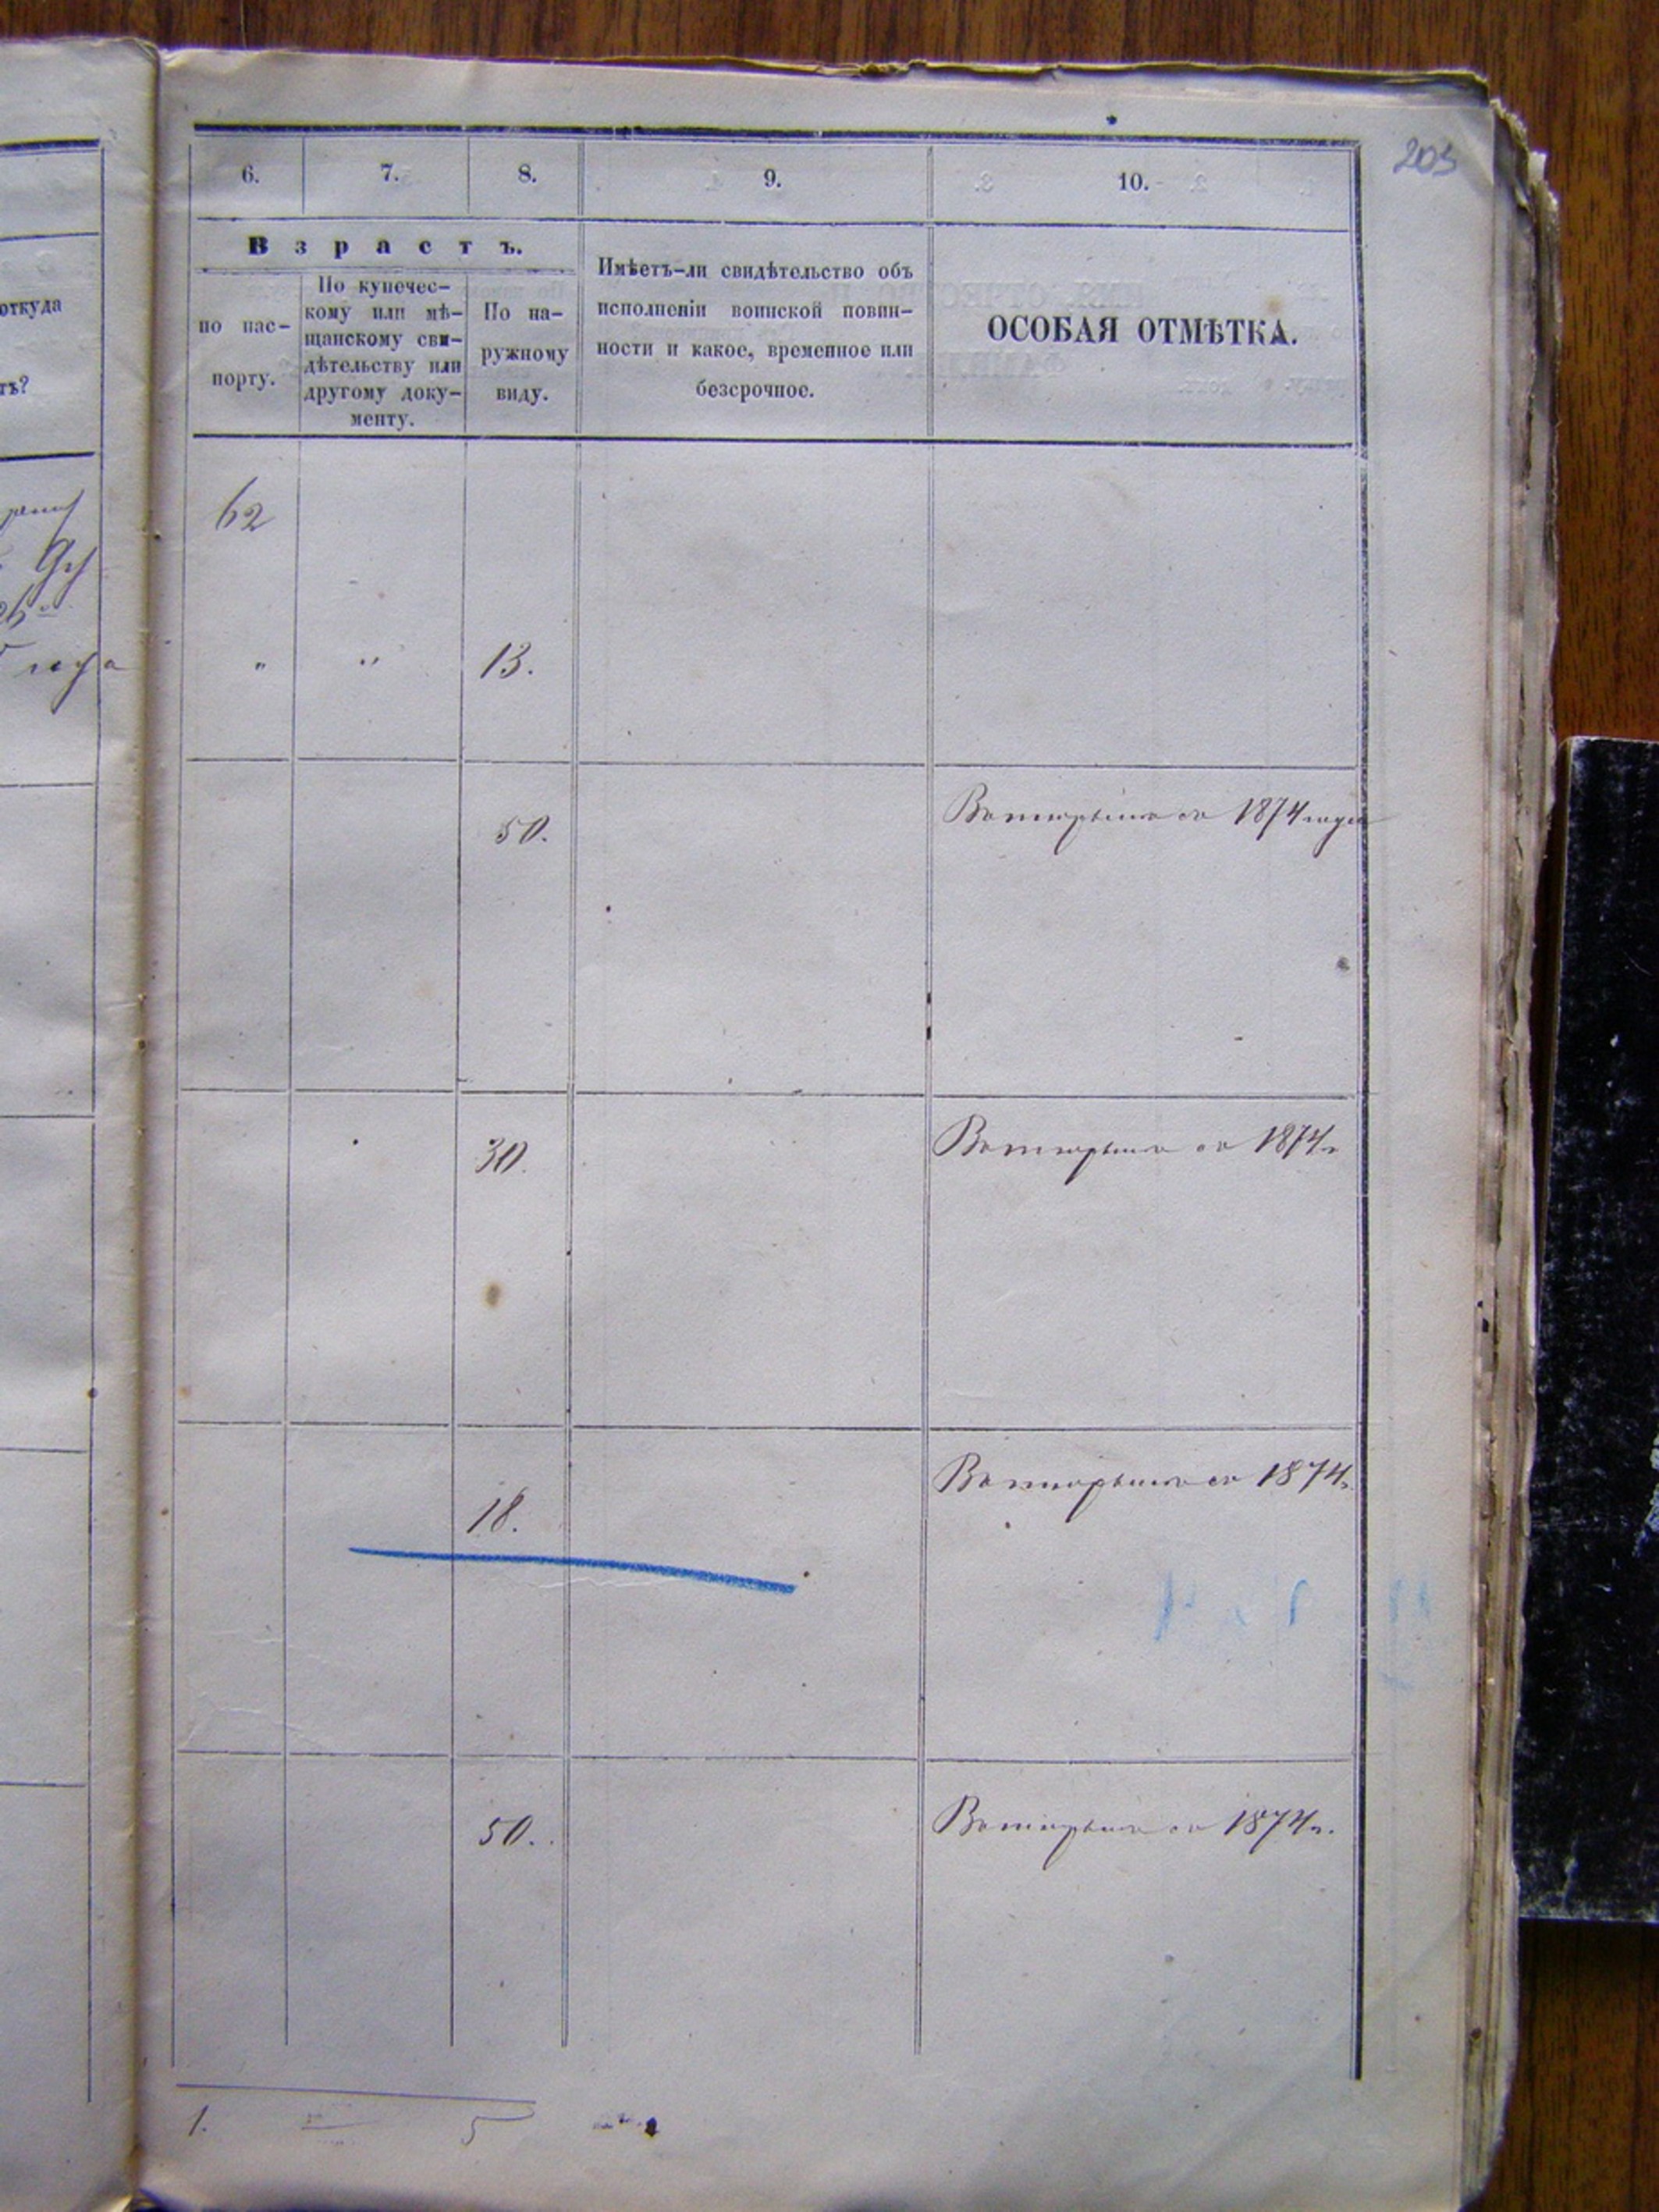 203
6. 7. 8. 9. 10.
Взрастъ.
по пас-
порту.
По купечес-
кому или мѣ-
щанскому сви-
дѣтельству или
другому доку-
менту.
По на-
ружному
виду.
Имѣетъ-ли свидѣтельство объ
исполненіи воинской повин-
ности и какое, временное или
безсрочное.
ОСОБАЯ ОТМѢТКА.
откуда
ть?
года
62
" " 13.
50. 1874 года
30. 1874 г
18. 1874 г.
50. 1874 г.
1. 5